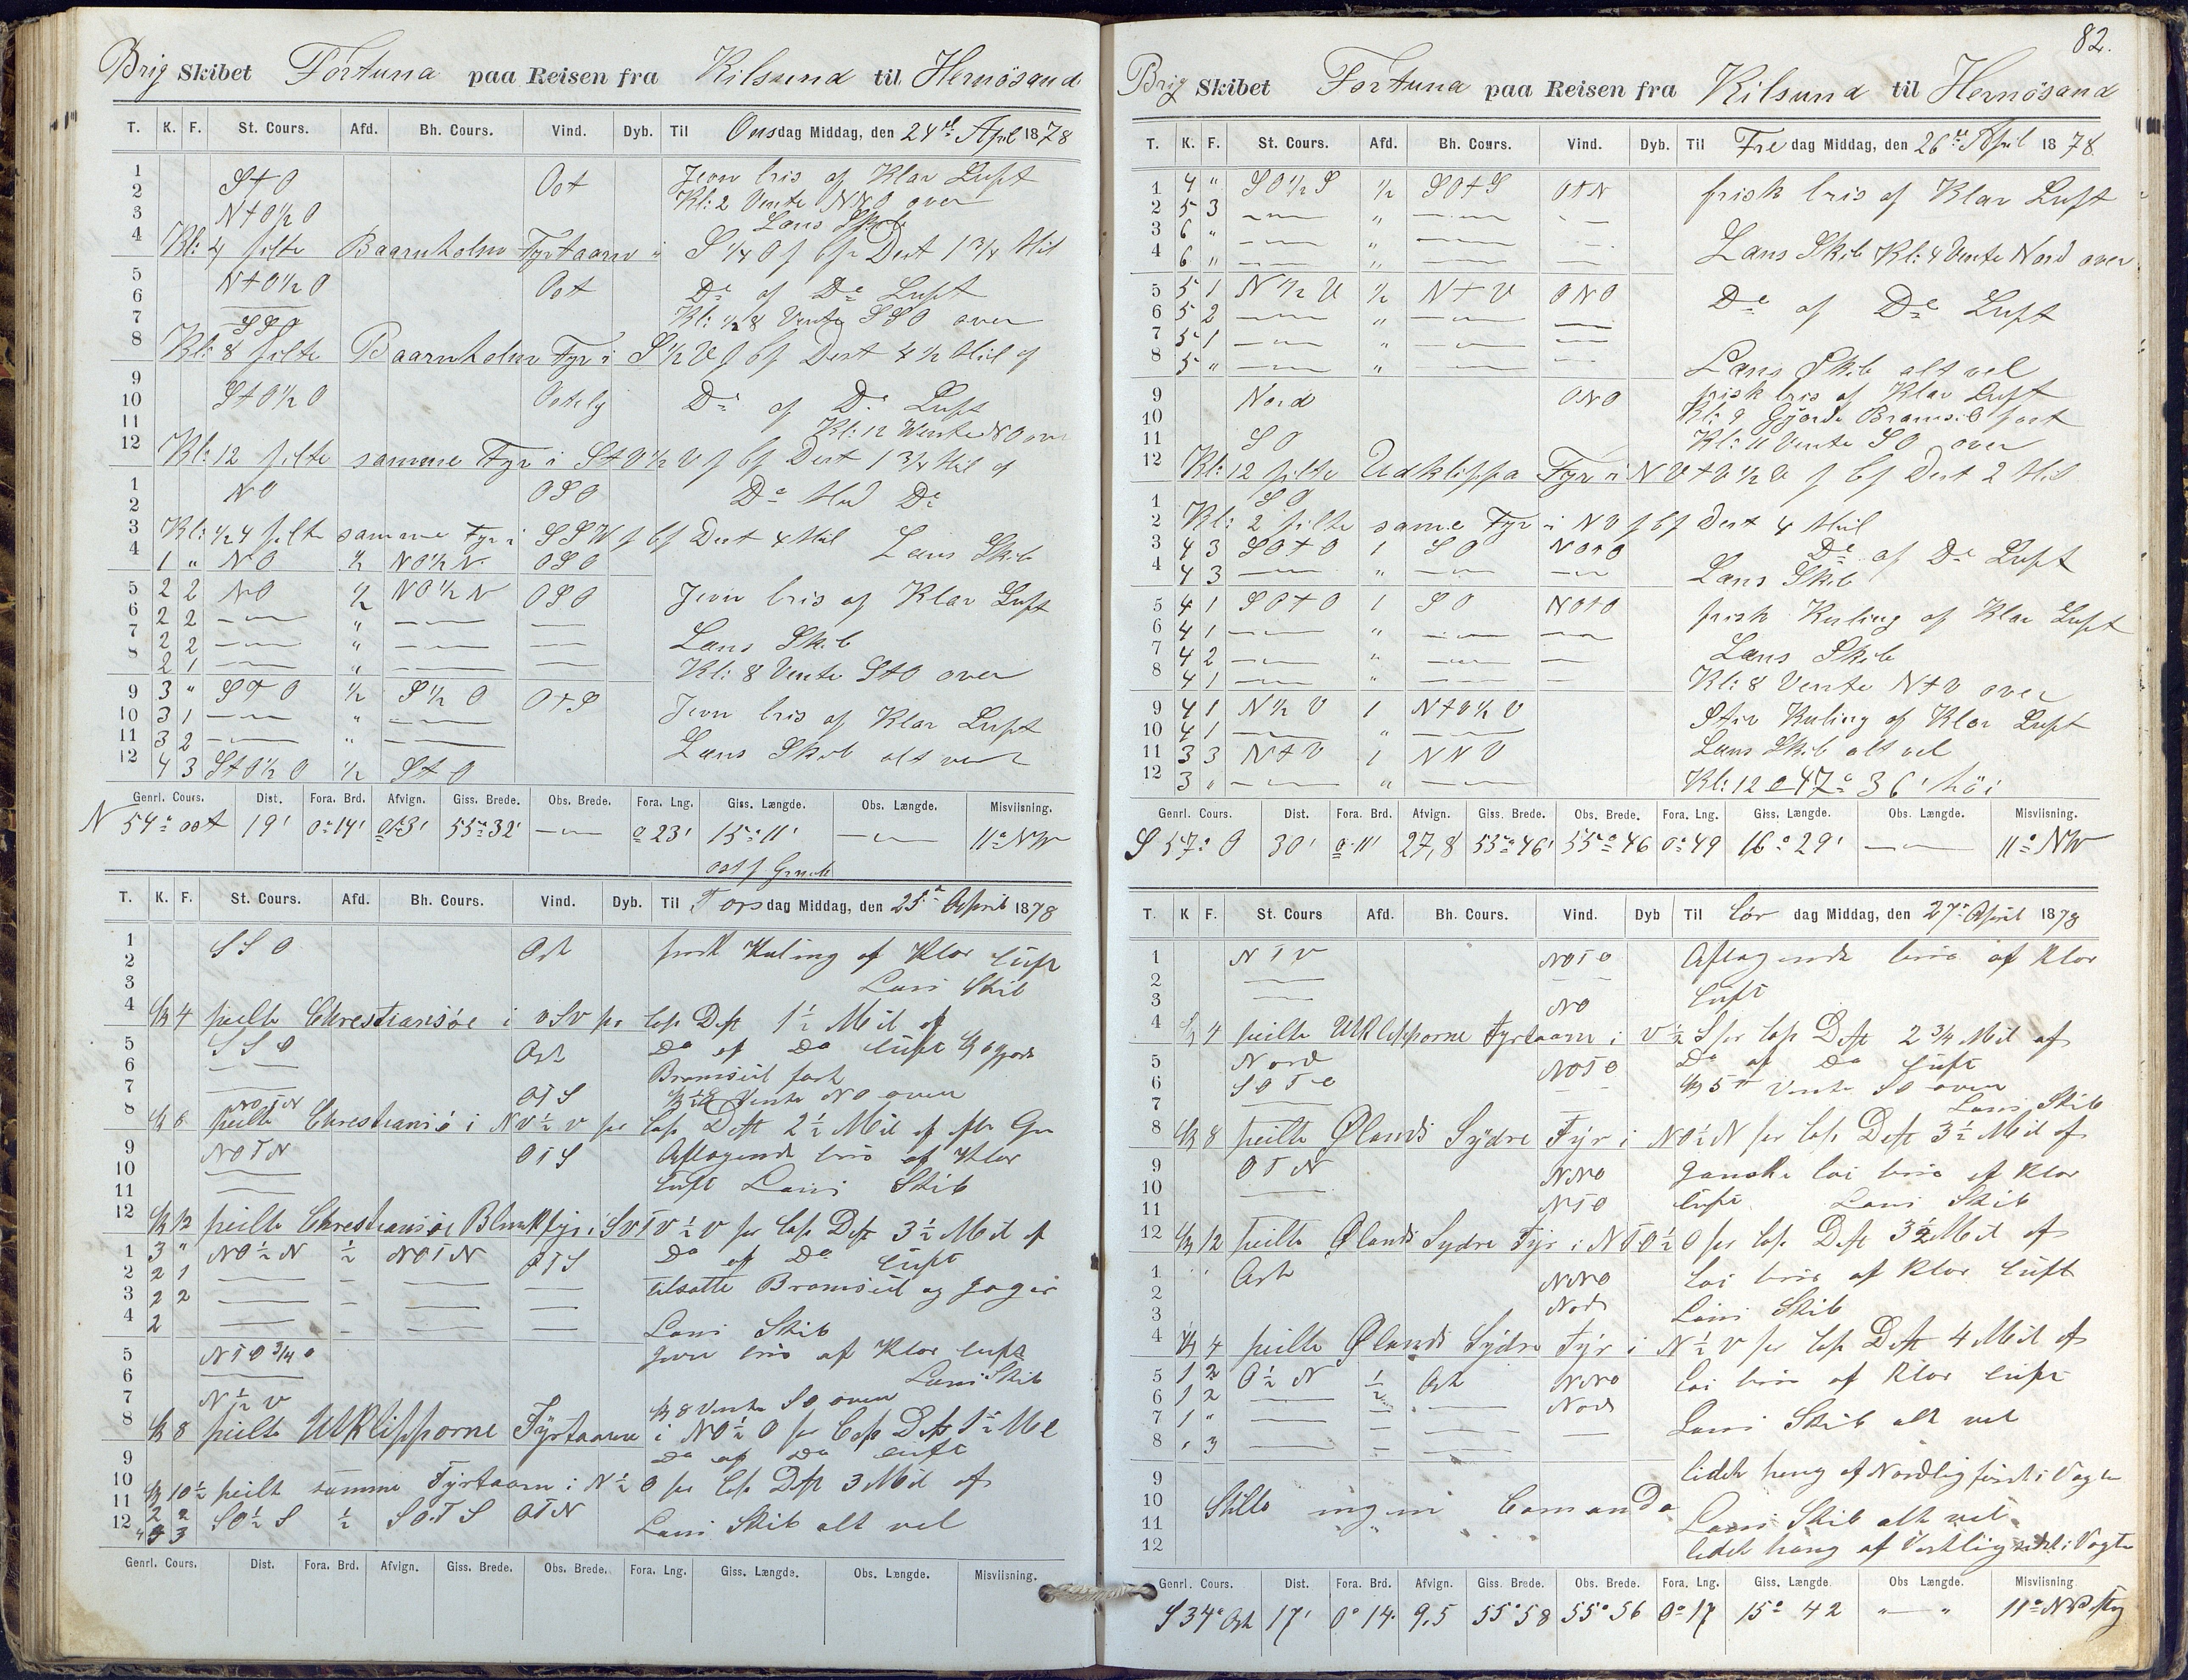 Brig Skibet Fortuna paa Reisen fra Kilsund til Hernösand
T. K. F. St. Cours. Afd. Bh. Cours. Vind. Dyb. Til Onsdag Middag, den 24de April 1878
1 StO Ost Jevn bris af Klar Luft
2 Kl: 2 Vente NNO over
3 Nt0½0 Lans Skib
4 Kl: 4 pilte Baarnholms Fyrtaarn i S ¼ O Dest 1 3/4 Mil
5 Nt0½0 Ost Do af Do Luft
6
7 SSO Kl: ½8 Vente SSO over
8 Kl: 8 pilte Baarnholm Fyr i S½V Dest 4½ Mil af
9 St0½0 Ostelig Do af Do Luft
10
11 Kl: 12 Wente NO over
12 Kl: 12 pilte samme Fyr i Dest 1 3/4 Mil af
1 NO OSO Do Med Do
2
3 Kl: ½4 pilte samme Fyr i SSW Dest 4 Mil Lans Skib
4 1 " NO ½ NO½N OSO
5 2 2 NO ½ NO½N OSO Jevn bris af Klar Luft
6 2 2 — " — —
7 2 2 — " — — Lans Skib
8 2 1 — " — — Kl: 8 Vente StO over
9 3 " StO ½ S½O OtS
10 3 1 — " — Jevn bris af Klar Luft
11 3 2 — " — Lans Skib alt vel
12 4 3 St0½0 ½ StO
Genrl. Cours. Dist. Fora. Brd. Afvign. Giss. Brede. Obs. Brede. Fora. Lng. Giss. Længde. Obs. Længde. Misviisning.
N 54° ost 19' 0°14' 55°32' — 0 23' 15°11' — 11° NW
T. K. F. St. Cours. Afd. Bh. Cours. Vind. Dyb. Til Torsdag Middag, den 25 April 1878
1 SSO Ost frisk Kuling af Klar luft
2
3 Lans Skib
4 Kl 4 peilte Chrestiansöe i vSv pr Cop Dest 1½ Mil af
5 SSO Ost Do af Do luft Kl 6 gjorde
6 — Bramseil fast
7 — OTS Vente NO over
8 NOTN
Kl 8 peilte Chrestiansö i Nv½v pr Cop Dest 2½ Mil af
9 NOTN OTS Aftagende bris af Klar
10 — luft Lans Skib
11 —
12 Kl 12 peilte Chrestiansöe Blinkfyr i SvTv½v pr Cop Dest 3½ Mil af
1 3 " NO½N ½ NOTN OTS Do af Do luft
2 2 1 — — — — tilsatte Bramseil og Jager
3 2 2 — — — —
4 2 — — — — Lans Skib
5 NTO3/4O Jevn bris af Klar luft
6 — Lans Skib
7 N½v Kl 8 Vente SO over
8 Kl 8 peilte Utklipporne Fyrtaarn i NO½O pr Cop Dest
9 Do af Do luft
10 Kl 10½ peilt samme Fyrtaarn i N½O pr Cop Dest 3 Mil af
11 2 2 SO½S ½ SOTS OTN Lans Skib alt vel
12
Genrl. Cours. Dist. Fora. Brd. Afvign. Giss. Brede. Obs. Brede. Fora. Lng. Giss. Længde. Obs. Længde. Misviisning.
82.
Brig Skibet Fortuna paa Reisen fra Kilsund til Hernösand
T. K. F. St. Cours. Afd. Bh. Cours. Vind. Dyb. Til Fredag Middag, den 26de April 1878
1 4 " SO½S ½ SOtS OtN frisk bris af Klar Luft
2 5 3 — " — —
3 6 " — " — — Lans Skib Kl: 4 Vente Nord over
4 6 " — " — —
5 5 1 N½V ½ NtV ONO Do af Do Luft
6 5 2 — " — —
7 5 1 — " — —
8 5 " — " — — Lans Skib alt vel
9 Nord ONO frisk bris af Klar Luft
10 Kl: 9 Gjorde Bramseil fast
11 SO Kl: 11 Vente SO over
12 Kl: 12 pilte Udklippa Fyr i NVtV½V Dest 2 Mil
1 SO
2 Kl: 2 pilte same Fyr i NV Dest 4 Mil
3 4 3 SOtO 1 SO NOtO Do af Do Luft
4 4 3 — " — — Lans Skib
5 4 1 SOtO 1 SO NOtO frisk Kuling af Klar Luft
6 4 1 — " — —
7 4 2 — " — — Lans Skib
8 4 1 — " — — Kl: 8 Vente NtV over
9 4 1 N½V 1 NtV½V Stiv Kuling af Klar Luft
10 4 1 — " —
11 3 3 NtV 1 NNV Lans Skib alt vel
12 3 " — " — Kl: 12 47° 36' höi
Genrl. Cours. Dist. Fora. Brd. Afvign. Giss. Brede. Obs. Brede. Fora. Lng. Giss. Længde. Obs. Længde. Misviisning.
S 57° O 30' 0°11' 27,8 55°46' 55°46 0°49 16°29' — 11° NW
T. K F. St. Cours Afd. Bh. Cours. Vind. Dyb Til Lördag Middag, den 27 April 1878
1 NTv NOTO Aftagende bris af Klar
2 —
3 — NO luft
4 Kl 4 peilte Utklipporne Fyrtaarn i v½S pr Cop Dest 2 3/4 Mil af
5 Nord NOTO Do af Do luft
6 SOTO — Kl 5 Vente SO over
7 — Lans Skib
8 Kl 8 peilte Ølands Sydre Fyr i NO½N pr Cop Dest 3½ Mil af
9 OTN NNO ganske lai bris af Klar
10 —
11 NTO luft Lans Skib
12 Kl 12 peilte Ølands Sydre Fyr i NTO½O pr Cop Dest 3½ Mil af
1 Ost NNO Lai bris af Klar luft
2
3 Nord Lans Skib
4 Kl 4 peilte Ølands Sydre Fyr i N½v pr Cop Dest 4 Mil af
5 1 2 O½N ½ Ost NNO Lai bris af Klar luft
6 1 2 — — — Nord
7 1 " — — — Lans Skib alt vel
8 " 3 — — —
9 lidet hang af Nordlig först i Vagten
10 Stille ingen Comando
11 Lans Skib alt vel
12 lidet hang af Vestlig sidst i Vagten
Genrl. Cours. Dist. Fora. Brd. Afvign. Giss. Brede. Obs. Brede. Fora. Lng. Giss. Længde Obs Længde. Misviisning
S 34° Ost 17' 0°14 9,5 55°58 55°56 0°17 15°42 " — " 11°